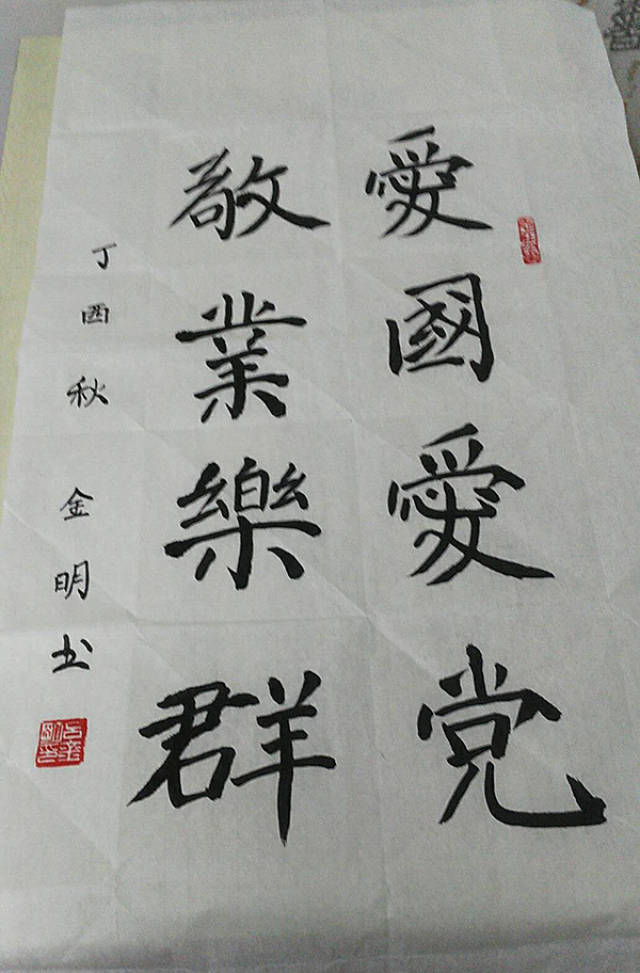 愛國愛党
敬業樂群
丁酉秋 金明书